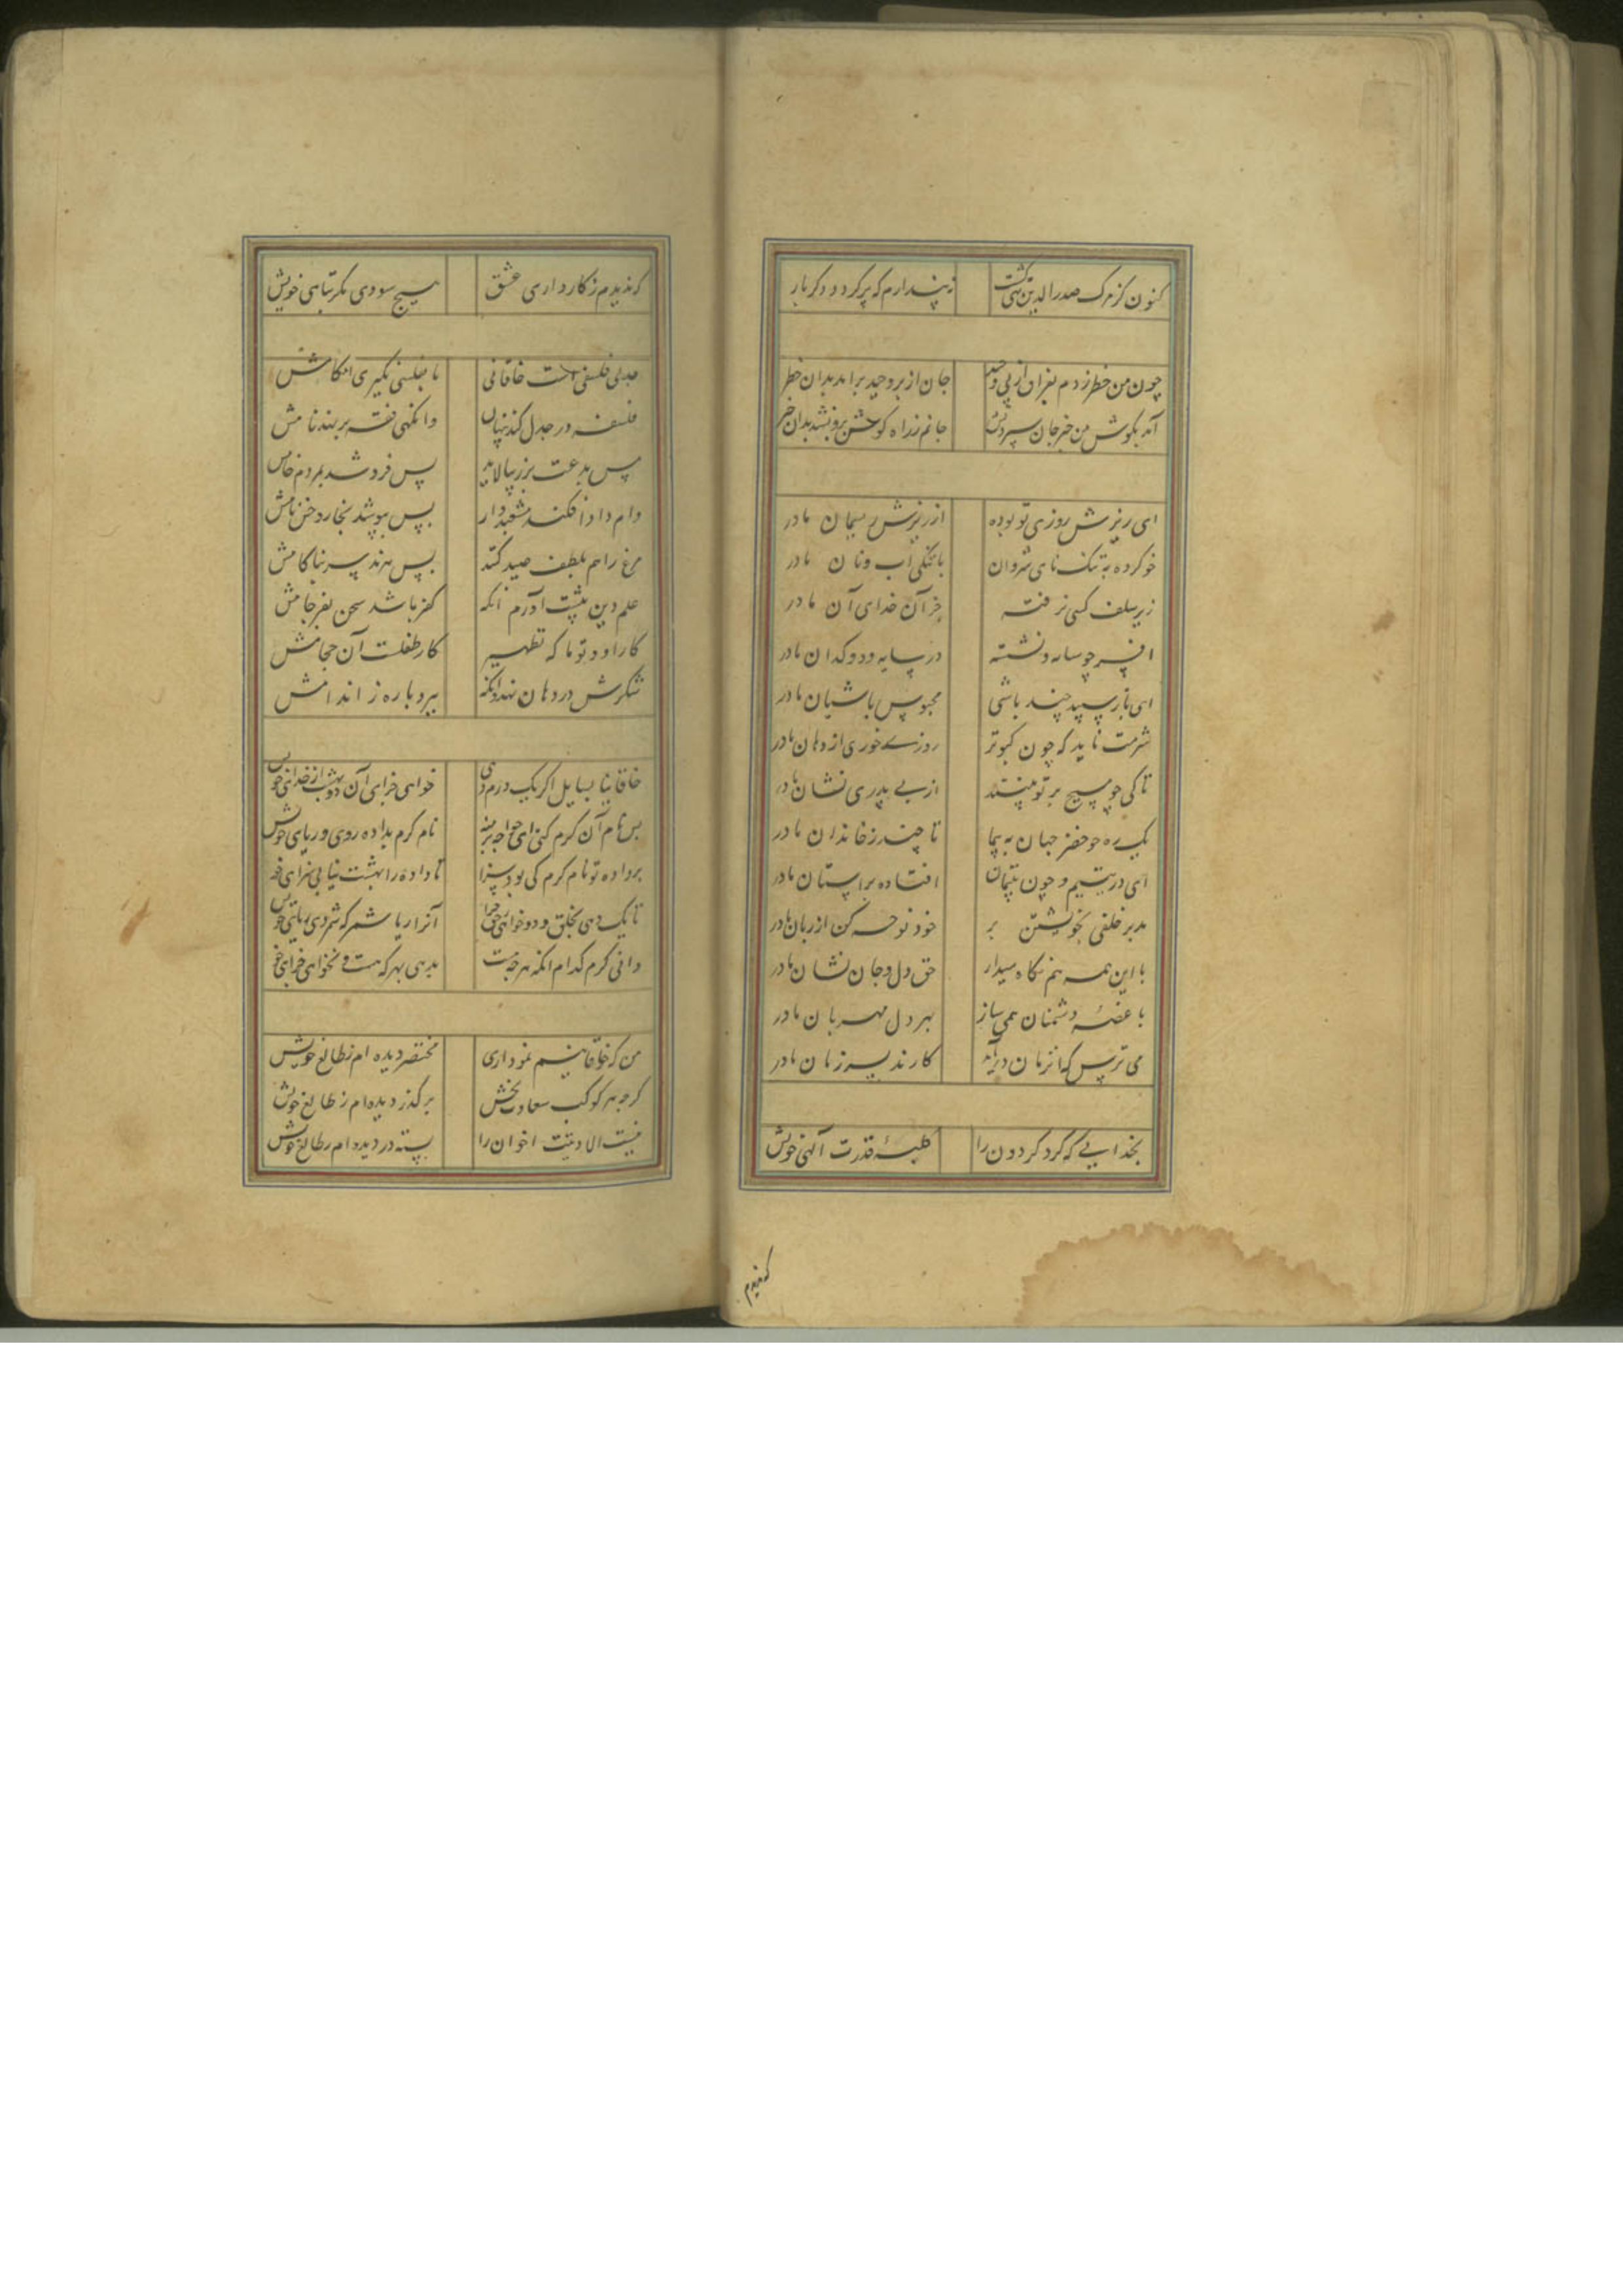 کنون کز مرک صدر الدین تهی کشت نپندارم که پر کردد دکر بار
چون من خطر زدم بفراق از پی وحید جان از بر وحید برآمد بدان خطر
آمد بکوش من خبر جان سپردنش جانم ز راه کوش برون شد بدان خبر
ای ریزش روزی تو بوده از ریزش ریسمان مادر
خو کرده به تنک نای شروان با تنکی آب و نان مادر
زیر سلف کسی نرفته جز آن خدای آن مادر
افسر چو سایه و نشسته در سایه دوکدان مادر
ای باز سپید چند باشی محبوس باشیان مادر
شرمت ناید که چون کبوتر روزی خوری از دهان مادر
تا کی چو مسیح بر تو بینند از بی پدری نشان مادر
یک ره چو خضر جهان به پیما تا چند ز خاندان مادر
ای در یتیم و چون یتیمان افتاده بر آستان مادر
مدبر خلفی بخویشتن بر خود نوحه کن از زبان مادر
با این همه هم نکاه میدار حق دل و جان نشان مادر
با غصه دشمنان همی ساز بهر دل مهربان مادر
می ترس که آن زمان درآید کارند بسر زمان مادر
بخدایی که کرد کردون را کلبه قدرت آلهی خویش
که ندیدم
که ندیدم ز کارداری عشق هیچ سودی مکر تباهی خویش
جدلی فلسفی است خاقانی تا بفلسی نکیری احکامش
فلسفه در جدل کند پنهان وانکهی فقه بر نهد نامش
مس بدعت بزر بیالاید پس فروشد بمردم خامش
دام دادا فکند مشعبدوار پس بپوشد بخار و خس دامش
مرغ را هم بلطف صید کند پس ببرد سر بناکامش
علم دین پیشت آورم آنکه کفر باشد سخن بفرجامش
کار او و تو تا که تطهیر کار طفلست آن حجامش
شکرش در دهان نهد وانکه ببرد پاره ز اندامش
خاقانیا بسایل اکر یک درم دهی خواهی جزای آن دو بهشت از خدای خویش
پس نام آن کرم کنی ای خواجه بر منه نام کرم بداده روی و ریای خویش
بر داده تو نام کرم کی بود سزا تا داده را بهشت نیابی سزای خویش
تا یک دهی بخلق و دو خواهی ز حق جزا آنرا ربا شمر که شمردی ربای خویش
دانی کرم کدام آنکه هر چه هست بدهی بهر که هست و نخواهی جزای خویش
من که خاقانیم نموداری مختصر دیده ام ز طالع خویش
کر چه هر کوکب سعادت بخش بر کذر دیده ام ز طالع خویش
نیست الا دنیت اخوان را بسته در دیده ام ز طالع خویش